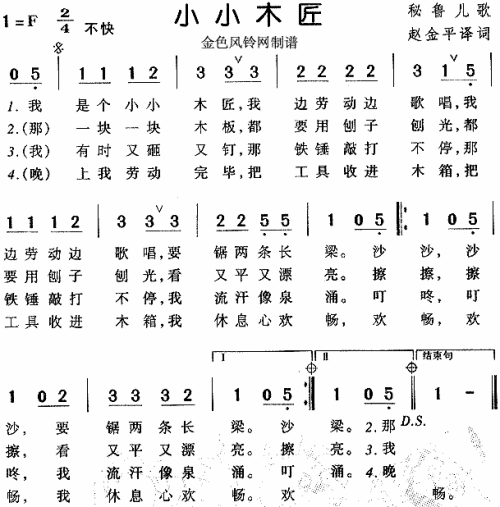 小小木匠
1=F 2/4 不快
金色风铃网制谱
秘鲁儿歌
赵金平译词
0 5 | 1 1 1 2 | 3 3 3 | 3 2 2 2 | 3 1 5 |
1.我 是个小小 木匠,我 边劳动边 歌唱,我
2.(那) 一块一块 木板,都 要用刨子 刨光,都
3.(我) 有时又砸 又钉,那 铁锤敲打 不停,那
4.(晚) 上我劳动 完毕,把 工具收进 木箱,把
1 1 1 2 | 3 3 3 | 2 2 5 5 | 1 0 5 | 1 0 5 |
边劳动边 歌唱,要 锯两条长 梁。沙 沙,沙
要用刨子 刨光,看 又平又漂 亮。擦 擦,擦
铁锤敲打 不停,我 流汗像泉 涌。叮 咚,叮
工具收进 木箱,我 休息心欢 畅,欢 畅,欢
I II 结束句
1 0 2 | 3 3 3 2 | 1 0 5 | 1 0 5 | 1 - |
沙,要 锯两条长 梁。沙 梁。2.那 D.S.
擦,看 又平又漂 亮。擦 亮。3.我
咚,我 流汗像泉 涌。叮 涌。4.晚
畅,我 休息心欢 畅。欢 畅。